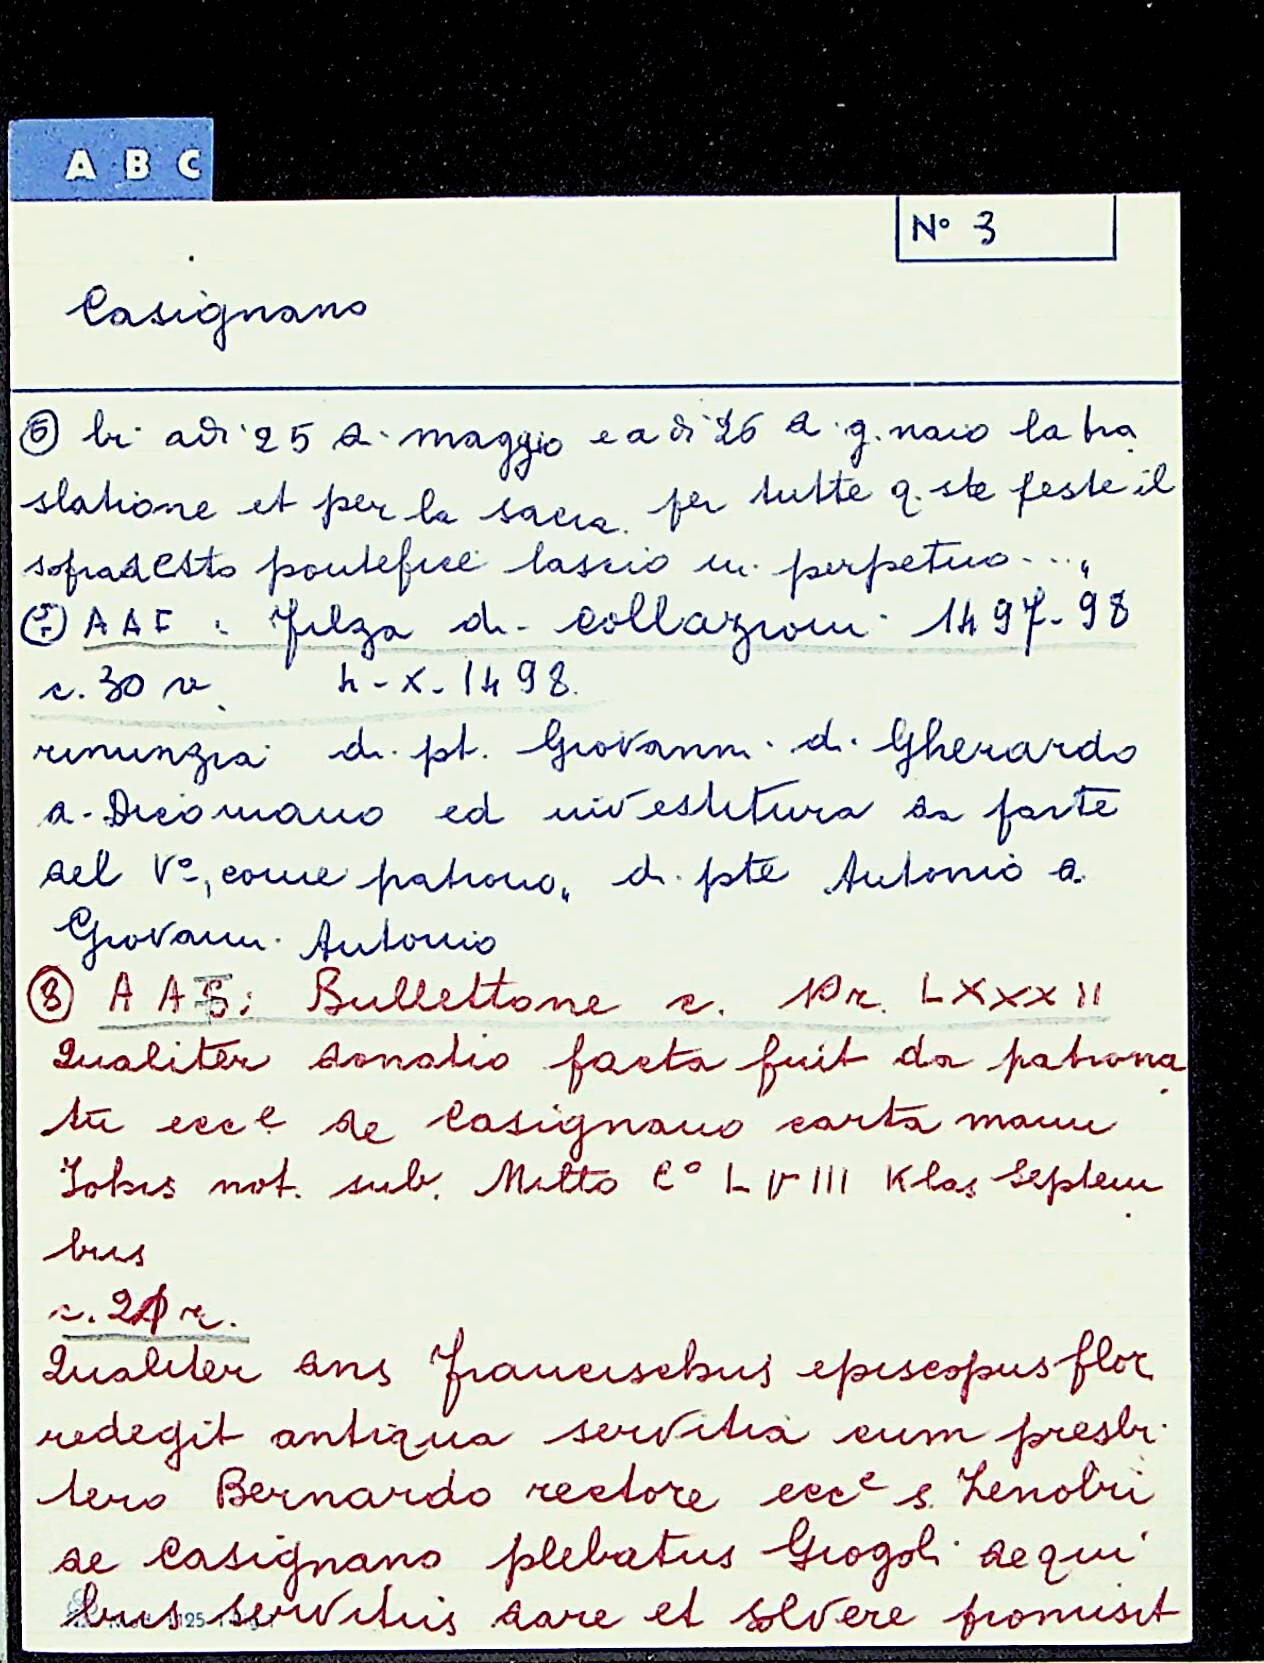 A B C
N° 3
Casignano
⑥ bri adi 25 di maggio e a di 26 di g.naio la tra
slatione et per la sacra. per tutte q.ste feste il
sopradesto pontefice lascio in perpetuo...,
⑦ AAF: Filza di collazioni 1497-98
c. 30 v. 4-X-1498.
rinunzia di pt. Giovanni di Gherardo
di Dicomano ed investitura da parte
del V°, come patrono, di pte Antonio di
Giovanni Antonio
⑧ AAF: Bullettone c. 10r. LXXXII
Qualiter donatio facta fuit da patrona
tu ecc.e de Casignano carta manu
Johis not. sub. Millo C° LVIII Klas Septem
bris
c. 21 r.
Qualiter dns Francischus episcopus flor
redegit antiqua servitia cum presbi
tero Bernardo rectore ecc.e s. Zenobii
de Casignano plebatus Giogoli de qui
bus servitiis dare et solvere promisit